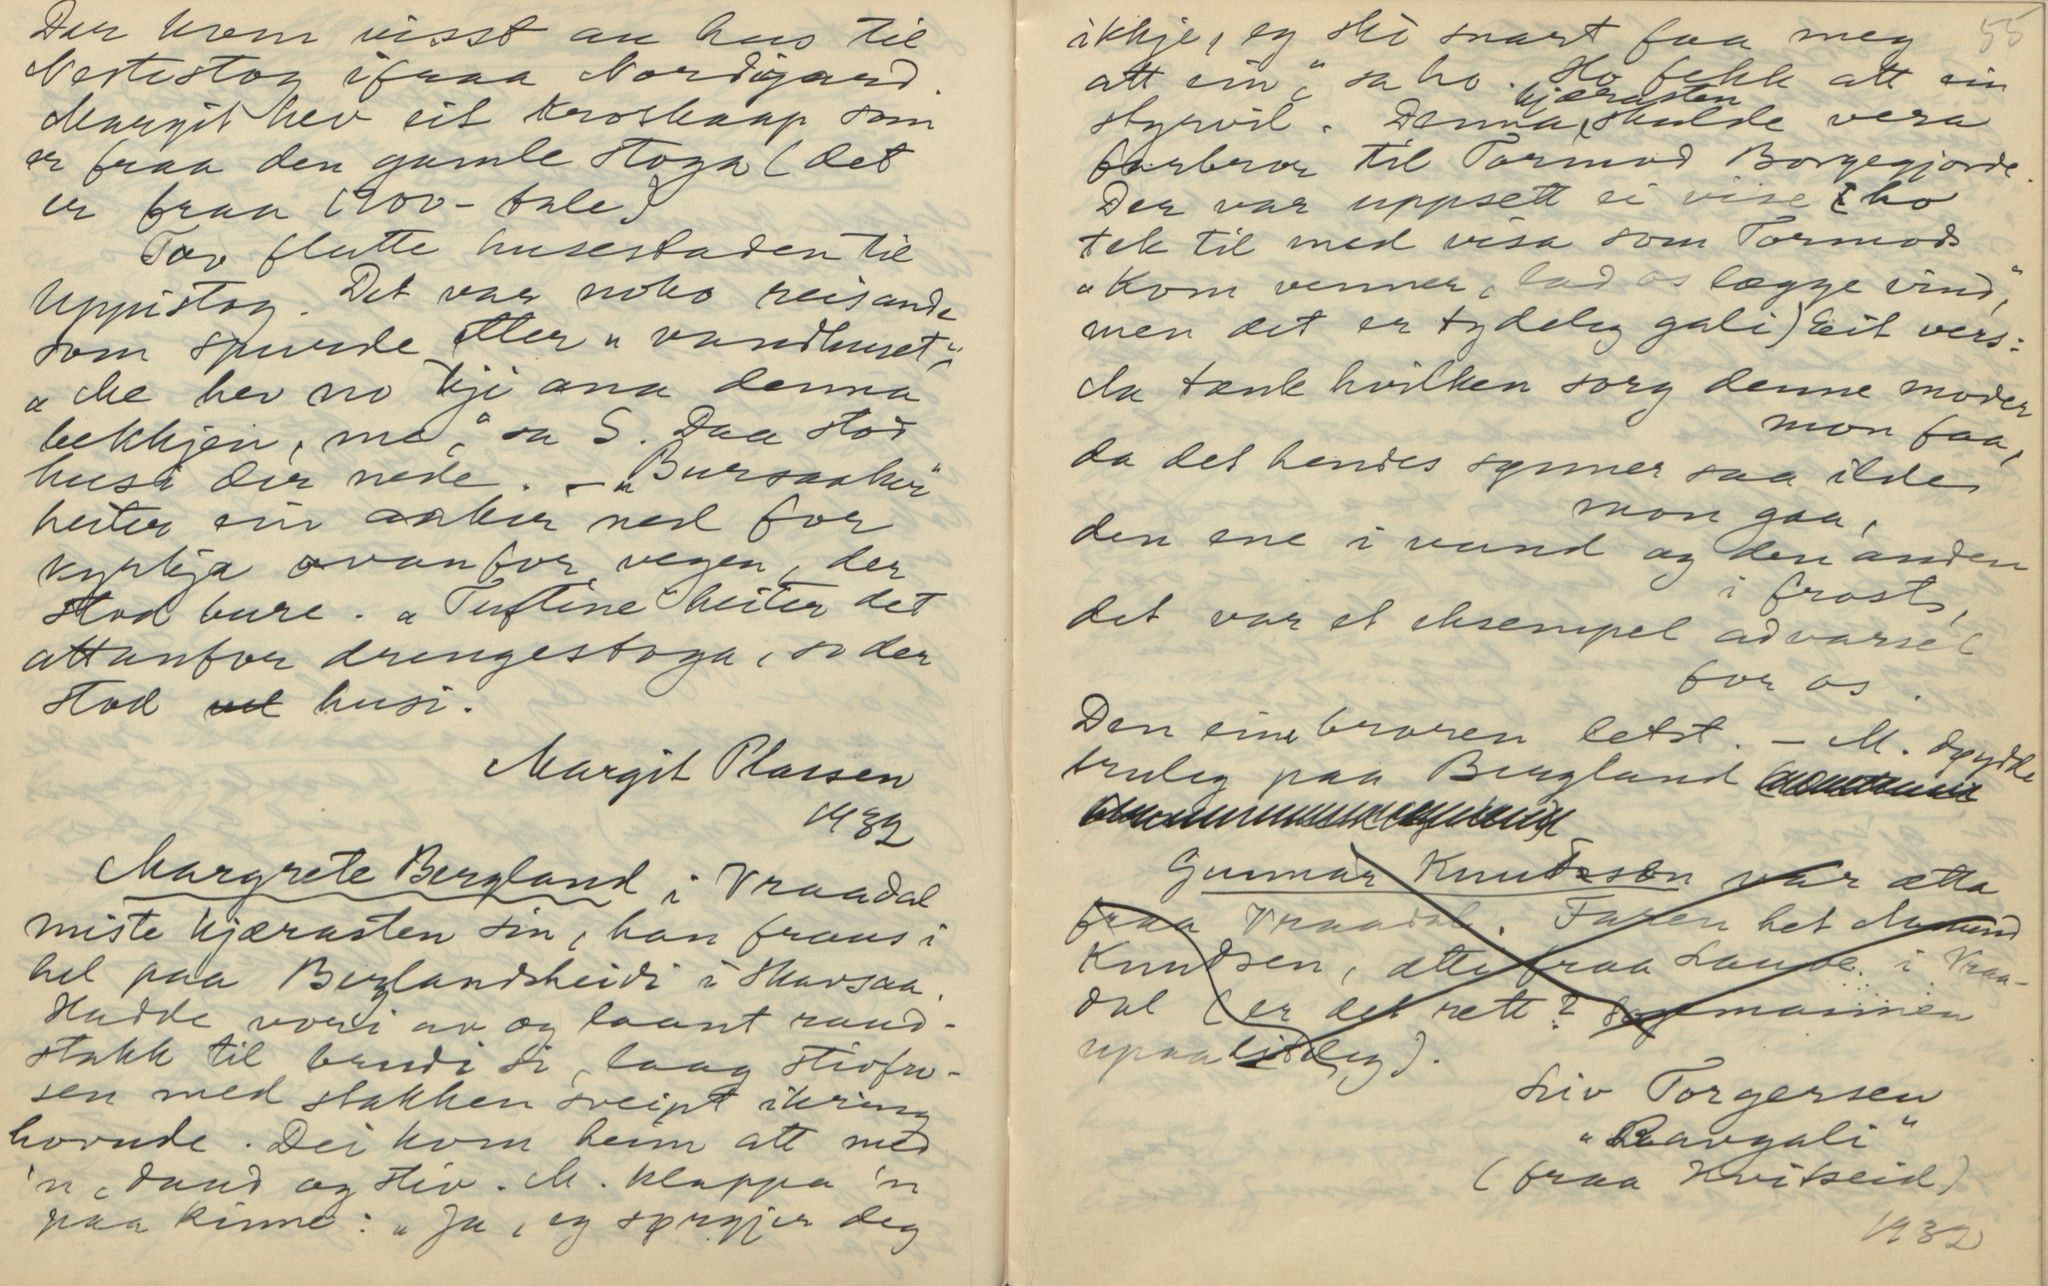 Der kom visst au hus til
Nestistog ifraa Nordigard.
Margit hev eit kroskaap som
er fraa den gamle stoga (det
er fraa 1700-tale)
Tov flutte husestaden til
Uppistog. Det var noko reisande
som spurde etter "vandhuset":
"Me hev no kji ana denna
bekkjen, me," sa S. Daa stod
husi der nede. - "Bursaaker"
heiter ein aaker ned for
kyrkja ovanfor vegen, der
stod bure. "Tuftine" heiter det
attanfor drengestoga, so der
stod vel husi.
Margit Plassen
1932
Margrete Bergland i Vraadal
miste kjærasten sin, han fraus i
hel paa Berglandsheidi i Skavsaa.
Hadde vori av og laant raud-
stakk til brudi si, laag stivfro-
sen med stakken sveipt ikring
hovude. Dei kom heim att med
'n, daud og stiv. M. klappa 'n
paa kinne: "Ja, eg syrgjer deg
55
ikkje, eg ski snart faa meg
att ein," sa ho. Ho fekk att ein
styrvil. Denna kjærasten skulde vera
farbror til Tormod Borgegjorde.
Der var uppsett ei vise (ho
tek til med visa som Tormods
"Kom venner, lad os lægge vind,"
men det er tydeleg gali) Eit vers:
Aa tænk hvilken sorg denne moder
mon faa,
da det hendes sønner saa ilde
mon gaa,
den ene i vand og den anden
i frost,
det var et eksempel advarsel
for os.
Den eine broren letst. - M. døydde
truleg paa Bergland
Gunnar Knudssen var ætta
fraa Vraadal. Faren het Aamund
Knudsen, ætta fraa Lande i Vraa-
dal (er det rett? Sogemannen
upaaliteleg).
Liv Torgersen
"Ravgali"
(fraa Kviteseid)
1932